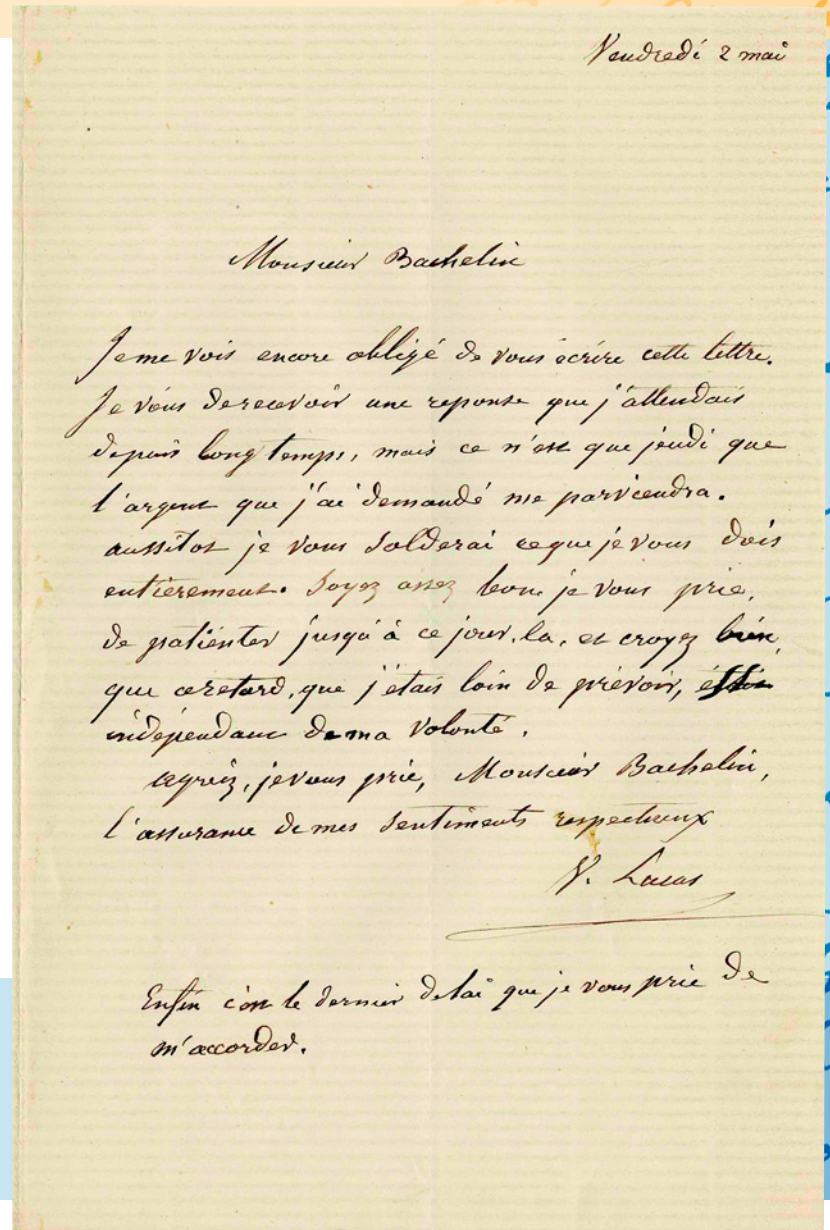 Vendredi 2 mai
Monsieur Bachelin
Je me vois encore obligé de vous écrire cette lettre.
Je viens de recevoir une reponse que j'attendais
depuis long temps, mais ce n'est que jeudi que
l'argent que j'ai demandé me parviendra.
aussitot je vous solderai ce que je vous dois
entièrement. Soyez assez bon, je vous prie,
de patienter jusqu'à ce jour-la, et croyez bien,
que ce retard, que j'étais loin de prévoir, est
indépendant de ma volonté.
agréez, je vous prie, Monsieur Bachelin,
l'assurance de mes sentiments respectueux
V. Lucas
Enfin c'est le dernier delai que je vous prie de
m'accorder.